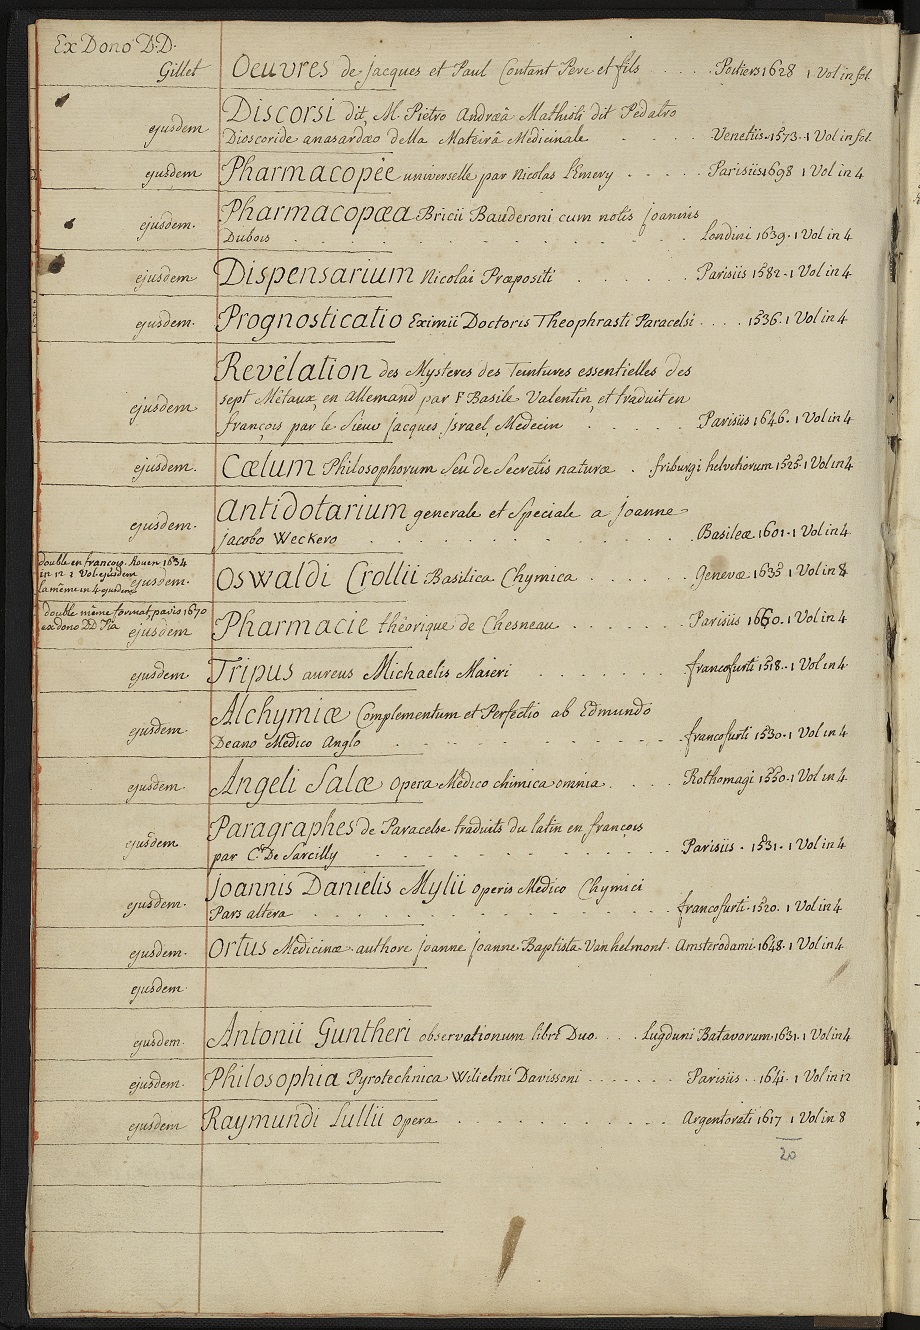 Ex Dono D.D.
Gillet Oeuvres de jacques et Paul Contant Pere et fils . . . . Poitiers 1628 1 Vol in fol.
Discorsi dit, M. Pietro Andræâ Mathioli dit Pedatro
ejusdem Dioscoride anasardæo della Mateirâ Medicinale . . . . Venetiis. 1573. 1 Vol in fol.
ejusdem Pharmacopée universelle par Nicolas L'Emery . . . . . Parisiis 1698 1 Vol in 4
Pharmacopæa Bricii Bauderoni cum notis joannis
ejusdem. Dubois . . . . . . . . . . . . . . Londini 1639. 1 Vol in 4
ejusdem Dispensarium Nicolai Præpositi . . . . . Parisiis 1582. 1 Vol in 4
ejusdem. Prognosticatio Eximii Doctoris Theophrasti Paracelsi . . . . 1536. 1 Vol in 4
Revélation des Mysteres des Teintures essentielles des
ejusdem sept Mêtaux, en allemand par F Basile Valentin, et traduit en
françois par le Sieur jacques, jsrael, Medecin . . . . . . Parisiis 1646. 1 Vol in 4
ejusdem. Cœlum Philosophorum seu de Secretis naturæ . friburgi helvetiorum 1525. 1 Vol in 4
Antidotarium generale et speciale a joanne
ejusdem. jacobo Weckero . . . . . . . . . . . . . Basileæ 1601. 1 Vol in 4
double en françois. Rouen 1634
in 12 2 Vol. ejusdem
la même in 4 ejusdem
ejusdem. Oswaldi Crollii Basilica Chymica . . . . . . Genevæ 1635 1 Vol in 8
double même format, paris 1670
ex dono DD Pia
ejusdem Pharmacie théorique de Chesneau . . . . . . . Parisiis 1660. 1 Vol in 4
ejusdem Tripus aureus Michaelis Maieri . . . . . . . francofurti 1518. 1 Vol in 4
Alchymiæ Complementum et Perfectio ab Edmundo
ejusdem Deano Medico Anglo . . . . . . . . . . . francofurti 1530. 1 Vol in 4
ejusdem. Angeli Salæ opera Medico chimica omnia . . . . . Rothomagi 1550. 1 Vol in 4
Paragraphes de Paracelse traduits du latin en françois
ejusdem par C. De Sarcilly . . . . . . . . . . . . Parisiis . 1531. 1 Vol in 4
joannis Danielis Mylii operis Medico Chymici
ejusdem. Pars altera . . . . . . . . . . . . . . francofurti. 1520. 1 Vol in 4
ejusdem. Ortus Medicinæ. authore joanne joanne Baptista Van helmont. Amsterodami. 1648. 1 Vol in 4
ejusdem.
ejusdem. Antonii Guntheri observationum libri Duo. . . . Lugduni Batavorum. 1631. 1 Vol in 4
ejusdem. Philosophia Pyrotechnica Wilielmi Davissoni . . . . . . Parisiis . . 1641. 1 Vol in 12
ejusdem Raymundi Lullii opera . . . . . . . . . . . Argentorati 1617 1 Vol in 8
20